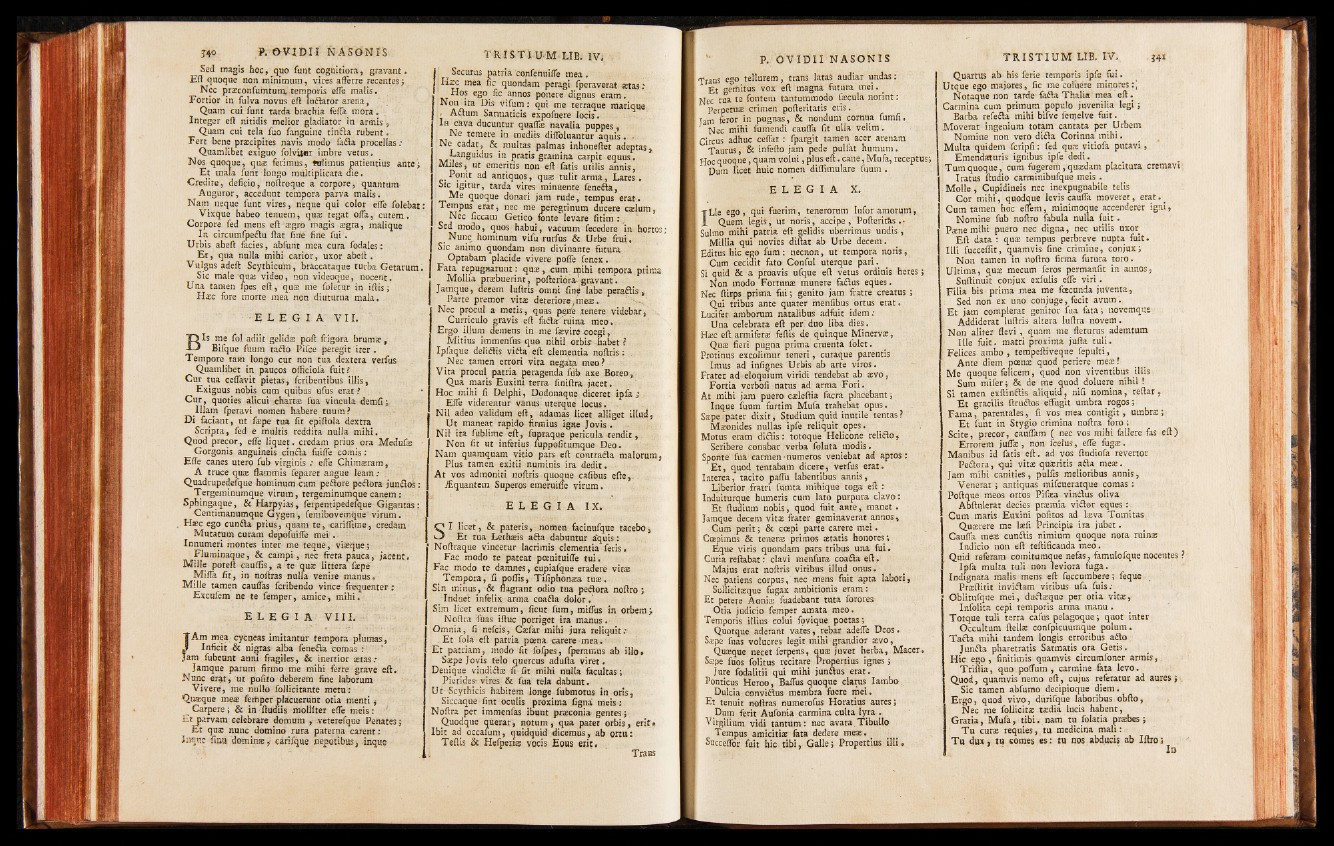 340 P. OVIDII NASONIS
Sed magis hoc, quo sunt cognitiora, gravant.
Est quoque non minimum, vires afferre recentes;
Nec præconsumtum, temporis esse malis.
Fortior in fulva novus est luctator arena,
Quam cui sunt tarda brachia fessa mora.
Integer est nitidis melior gladiator in armis,
Quam cui tela suo sanguine tincta rubent.
Fert bene præcipites navis modo facta procellas:
Quamlibet exiguo solvitur imbre vetus.
Nos quoque, quæ ferimus, tulimus patientius ante;
Et mala sunt longo multiplicata die.
Credite, deficio, nostroque a corpore, quantum
Auguror, accedunt tempora parva malis.
Nam neque sunt vires, neque qui color esse solebat:
Vixque habeo tenuem, quæ tegat ossa, cutem.
Corpore sed mens est ægro magis ægra, malique
In circumspectu stat sine fine sui.
Urbis abest facies, absunt mea cura sodales:
Et, qua nulla mihi carior, uxor abest.
Vulgus adest Scythicum, braccataque turba Getarum.
Sic male quæ video, non videoque, nocent.
Una tamen spes est, quæ me soletur in istis;
Hæc fore morte mea non diuturna mala.
ELEGIA VII.
BIs me sol adiit gelidæ post frigora brumæ,
Bisque suum tacto Pisce peregit iter.
Tempore tam longo cur non tua dextera versus
Quamlibet in paucos officiosa fuit?
Cur tua cessavit pietas, scribentibus illis,
Exiguus nobis cum quibus usus erat?
Cur, quoties alicui chartæ sua vincula demsi;
Illam speravi nomen habere tuum?
Di faciant, ut sæpe tua sit epistola dextra
Scripta, sed e multis reddita nulla mihi.
Quod precor, esse liquet. credam prius ora Medusæ
Gorgonis anguineis cincta fuisse comis:
Esse canes utero sub virginis: esse Chimæram,
A truce quæ flammis separet angue leam:
Quadrupedesque hominum cum pectore pectora junctos:
Tergeminumque virum, tergeminumque canem:
Sphingaque, & Harpyias, serpentipedesque Gigantas:
Centimanumque Gygen, semibovemque virum.
Hæc ego cuncta prius, quam te, carissime, credam
Mutatum curam deposuisse mei.
Innumeri montes inter me teque, viæque;
Fluminaque, & campi, nec freta pauca, jacent.
Mille potest caussis, a te quæ littera sæpe
Missa sit, in nostras nulla venire manus.
Mille tamen caussas scribendo vince frequenter:
Excusem ne te semper, amice, mihi.
ELEGIA VIII.
JAm mea cycneas imitantur tempora plumas,
Inficit & nigras alba senecta comas:
Jam subeunt anni fragiles, & inertior ætas:
Jamque parum firmo me mihi ferre grave est.
Nunc erat, ut posito deberem fine laborum
Vivere, me nullo sollicitante metu:
Quæque meæ semper placuerunt otia menti,
Carpere; & in studiis molliter esse meis:
Et parvam celebrare domum, veteresque Penates;
Et quæ nunc domino rura paterna carent:
Inque sinu dominæ, carisque nepotibus, inque
TRISTIUM LIB. IV.
Securus patria consenuisse mea.
Hæc mea sic quondam peragi speraverat ætas:
Hos ego sic annos ponere dignus eram.
Non ita Dis visum: qui me terraque marique
Actum Sarmaticis exposuere locis.
In cava ducuntur quassæ navalia puppes,
Ne temere in mediis dissoluantur aquis.
Ne cadat, & multas palmas inhonestet adeptas,
Languidus in pratis gramina carpit equus.
Miles, ut emeritis non est satis utilis annis,
Ponit ad antiquos, quæ tulit arma, Lares.
Sic igitur, tarda vires minuente senecta,
Me quoque donari jam rude, tempus erat.
Tempus erat, nec me peregrinum ducere cælum,
Nec siccam Getico fonte levare sitim:
Sed modo, quos habui, vacuum secedere in hortos:
Nunc hominum visu rursus & Urbe frui.
Sic animo quondam non divinante futura
Optabam placide vivere posse senex.
Fata repugnarunt: quæ, cum mihi tempora prima
Mollia præbuerint, posteriora gravant.
Jamque, decem lustris omni sine labe peractis,
Parte premor vitæ deteriore meæ.
Nec procul a metis, quas pene tenere videbar,
Curriculo gravis est facta ruina meo.
Ergo illum demens in me sævire coegi,
Mitius immensus quo nihil orbis habet?
Ipsaque delictis victa est clementia nostris:
Nec tamen errori vita negata meo?
Vita procul patria peragenda sub axe Boreo,
Qua maris Euxini terra sinistra jacet.
Hoc mihi si Delphi, Dodonaque diceret ipsa;
Esse viderentur vanus uterque locus.
Nil adeo validum est, adamas licet alliget illud,
Ut maneat rapido firmius igne Jovis.
Nil ita sublime est, supraque pericula tendit,
Non sit ut inferius suppositumque Deo.
Nam quamquam vitio pars est contracta malorum,
Plus tamen exitii numinis ira dedit.
At vos admoniti nostris quoque casibus este,
Æquantem Superos emeruisse virum.
ELEGIA IX.
SI licet, & pateris, nomen facinusque tacebo,
Et tua Lethæis acta dabuntur aquis:
Nostraque vincetur lacrimis clementia seris.
Fac modo te pateat pœnituisse tui.
Fac modo te damnes, cupiasque eradere vitæ
Tempora, si possis, Tisiphonæa tuæ.
Sin minus, & flagrant odio tua pectora nostro;
Induet infelix arma coacta dolor.
Sim licet extremum, sicut sum, missus in orbem;
Nostra suas istuc porriget ira manus.
Omnia, si nescis, Cæsar mihi jura reliquit:
Et sola est patria pœna carere mea.
Et patriam, modo sit sospes, speramus ab illo.
Sæpe Jovis telo quercus adusta viret.
Denique vindictæ si sit mihi nulla facultas;
Pierides vires & sua tela dabunt.
Ut Scythicis habitem longe submotus in oris,
Siccaque sint oculis proxima signa meis:
Nostra per immensas ibunt præconia gentes;
Quodque querar, notum, qua patet orbis, erit.
Ibit ad occasum, quidquid dicemus, ab ortu:
Testis & Hesperiæ vocis Eous erit.
Trans
P. OVIDII NASONIS
Trans ego tellurem, trans latas audiar undas:
Et gemitus vox est magna futura mei.
Nec tua te sontem tantummodo sæcula norint:
Perpetuæ crimen posteritatis eris.
Jam feror in pugnas, & nondum cornua sumsi,
Nec mihi sumendi caussa sit ulla velim.
Circus adhuc cessat: spargit tamen acer arenam
Taurus, & infesto jam pede pulsat humum.
Hoc quoque, quam volui, plus est. cane, Musa, receptus;
Dum licet huic nomen dissimulare suum.
ELEGIA X.
ILle ego, qui fuerim, tenerorum lusor amorum,
Quem legis, ut noris, accipe, Posteritas.
Sulmo mihi patria est gelidis uberrimus undis,
Millia qui novies distat ab Urbe decem.
Editus hic ego sum: necnon, ut tempora noris,
Cum cecidit fato Consul uterque pari.
Si quid & a proavis usque est vetus ordinis heres;
Non modo Fortunæ munere factus eques.
Nec stirps prisma fui; genito jam fratre creatus;
Qui tribus ante quater mensibus ortus erat.
Lucifer amborum natalibus adfuit idem:
Una celebrata est per duo liba dies.
Hæc est armiferæ festis de quinque Minervæ,
Quæ fieri pugna prima cruenta solet.
Protinus excolimur teneri, curaque parentis
Imus ad insignes Urbis ab arte viros.
Frater ad eloquium viridi tendebat ab ævo,
Fortia verbosi natus ad arma Fori.
At mihi jam puero cælestia sacra placebant;
Inque suum furtim Musa trahebat opus.
Sæpe pater dixit, Studium quid inutile tentas?
Mæonides nullas ipse reliquit opes.
Motus eram dictis: totoque Helicone relicto,
Scribere conabar verba soluta modis.
Sponte sua carmen numeros veniebat ad aptos:
Et, quod tentabam dicere, versus erat.
Interea, tacito passu labentibus annis,
Liberior fratri sumta mihique toga est:
Induiturque humeris cum lato purpura clavo:
Et studium nobis, quod fuit ante, manet.
Jamque decem vitæ frater geminaverat annos,
Cum perit; & cœpi parte carere mei.
Cœpimus & teneræ primos ætatis honores;
Eque viris quondam pars tribus una fui.
Curia restabat: clavi mensura coacta est.
Majus erat nostris viribus illud onus.
Nec patiens corpus, nec mens fuit apta labori,
Sollicitæque fugax ambitionis eram:
Et petere Aoniæ suadebant tuta sorores
Otia judicio semper amata meo.
Temporis illius colui fovique poetas;
Quotque aderant vates, rebar adesse Deos.
Sæpe suas volucres legit mihi grandior ævo,
Quæque necet serpens, quæ juvet herba, Macer.
Sæpe suos solitus recitare Propertius ignes;
Jure sodalitii qui mihi junctus erat.
Ponticus Heroo, Bassus quoque clarus Iambo
Dulcia convictus membra fuere mei.
Et tenuit nostras numerosus Horatius aures;
Dum ferit Ausonia carmina culta lyra.
Virgilium vidi tantum: nec avara Tibullo
Tempus amicitiæ fata dedere meæ.
Successor fuit hic tibi, Galle; Propertius illi.
TRISTIUM LIB. IV. 341
Quartus ab his serie temporis ipse fui.
Utque ego majores, sic me coluere minores:
Notaque non tarde facta Thalia mea est.
Carmina cum primum populo juvenilia legi;
Barba resecta mihi bisve semelve fuit.
Moverat ingenium totam cantata per Urbem
Nomine non vero dicta Corinna mihi.
Multa quidem scripsi: sed quæ vitiosa putavi,
Emendaturis ignibus ipse dedi.
Tum quoque, cum fugerem, quædam placitura cremavi
Iratus studio carminibusque meis.
Molle, Cupidineis nec inexpugnabile telis
Cor mihi, quodque levis caussa moveret, erat.
Cum tamen hoc essem, minimoque accenderer igni,
Nomine sub nostro fabula nulla fuit.
Pæne mihi puero nec digna, nec utilis uxor
Est data: quæ tempus perbreve nupta fuit.
Illi successit, quamvis sine crimine, conjux;
Non tamen in nostro firma futura toro.
Ultima, quæ mecum seros permansit in annos,
Sustinuit conjux exsulis esse viri.
Filia bis prima mea me fœcunda juventa,
Sed non ex uno conjuge, fecit avum.
Et jam complerat genitor sua fata; novemque
Addiderat lustris altera lustra novem.
Non aliter flevi, quam me fleturus ademtum
Ille fuit. matri proxima justa tuli.
Felices ambo, tempestiveque sepulti,
Ante diem pœnæ quod periere meæ!
Me quoque felicem, quod non viventibus illis
Sum miser; & de me quod doluere nihil!
Si tamen exstinctis aliquid, nisi nomina, restat,
Et gracilis structos effugit umbra rogos;
Fama, parentales, si vos mea contigit, umbræ;
Et sunt in Stygio crimina nostra foro:
Scite, precor, caussam (nec vos mihi fallere fas est)
Errorem jussæ, non scelus, esse fugæ.
Manibus id satis est. ad vos studiosa revertor
Pectora, qui vitæ quæritis acta meæ.
Jam mihi canities, pulsis melioribus annis,
Venerat; antiquas miscueratque comas:
Postque meos ortus Pisæa vinctus oliva
Abstulerat decies præmia victor eques:
Cum maris Euxini positos ad læva Tomitas
Quærere me læsi Principis ira jubet.
Caussa meæ cunctis nimium quoque nota ruinæ
Indicio non est testificanda meo.
Quid referam comitumque nefas, famulosque nocentes?
Ipsa multa tuli non leviora fuga.
Indignata malis mens est succumbere; seque
Præstitit invictam viribus usa suis.
Oblitusque mei, ductæque per otia vitæ,
Insolita cepi temporis arma manu.
Totque tuli terra casus pelagoque; quot inter
Occultum stellæ conspicuumque polum.
Tacta mihi tandem longis erroribus acto
Juncta pharetratis Sarmatis ora Getis.
Hic ego, finitimis quamvis circumsoner armis,
Tristia, quo possum, carmine fata levo.
Quod, quamvis nemo est, cujus referatur ad aures;
Sic tamen absumo decipioque diem.
Ergo, quod vivo, durisque laboribus obsto,
Nec me sollicitæ tædia lucis habent,
Gratia, Musa, tibi. nam tu solatia præbes;
Tu curæ requies, tu medicina mali:
Tu dux, tu comes es: tu nos abducis ab Istro;
In